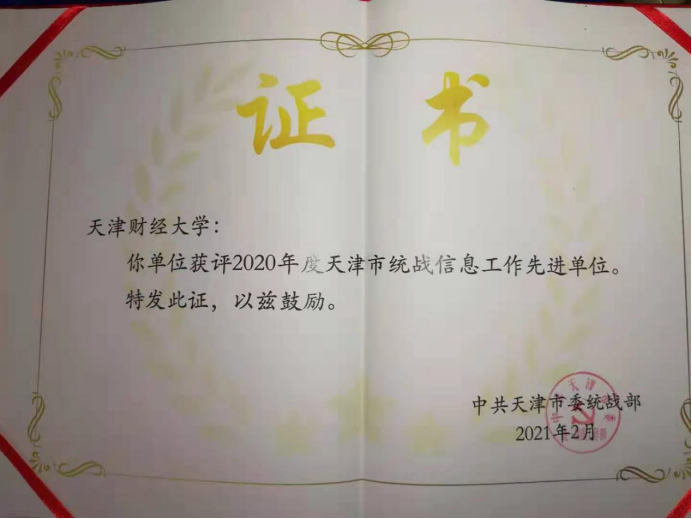 证书
天津财经大学：
你单位获评2020年度天津市统战信息工作先进单位。
特发此证，以兹鼓励。
中共天津市委统战部
2021年2月